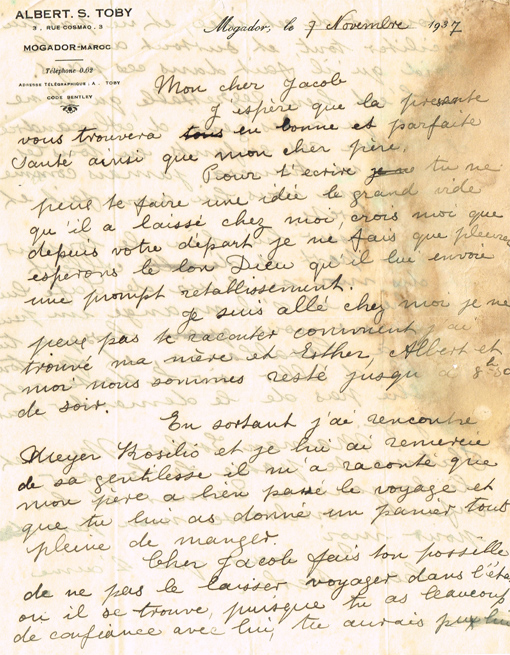 ALBERT. S. TOBY
3, RUE COSMAO, 3
MOGADOR-MAROC
Téléphone 0.63
ADRESSE TÉLÉGRAPHIQUE: A. TOBY
CODE BENTLEY
Mogador, le 7 Novembre 1937
Mon cher Jacob
J espère que la presente
vous trouvera tous en bonne et parfaite
Santé ainsi que mon cher père.
Pour t'ecrire je ne tu ne
peux te faire une idée le grand vide
qu'il a laissé chez moi, crois moi que
depuis votre départ je ne fais que pleurer
esperons le bon Dieu qu'il lui envoie
une prompt retablissement.
Je suis allé chez moi je ne
peux pas te raconter comment j'ai
trouvé ma mère et Esther, Albert et
moi nous sommes resté jusqu'a 8
de soir.
En sortant j'ai rencontre
Meyer Kosilio et je lui ai remercie
de sa gentilesse il m'a raconté que
mon père a bien passé le voyage et
que tu lui as donné un panier tout
pleine de manger.
Cher Jacob fais ton possible
de ne pas le laisser voyager dans l'état
ou il se trouve, puisque tu as beaucoup
de confiance avec lui, tu aurais pu lui